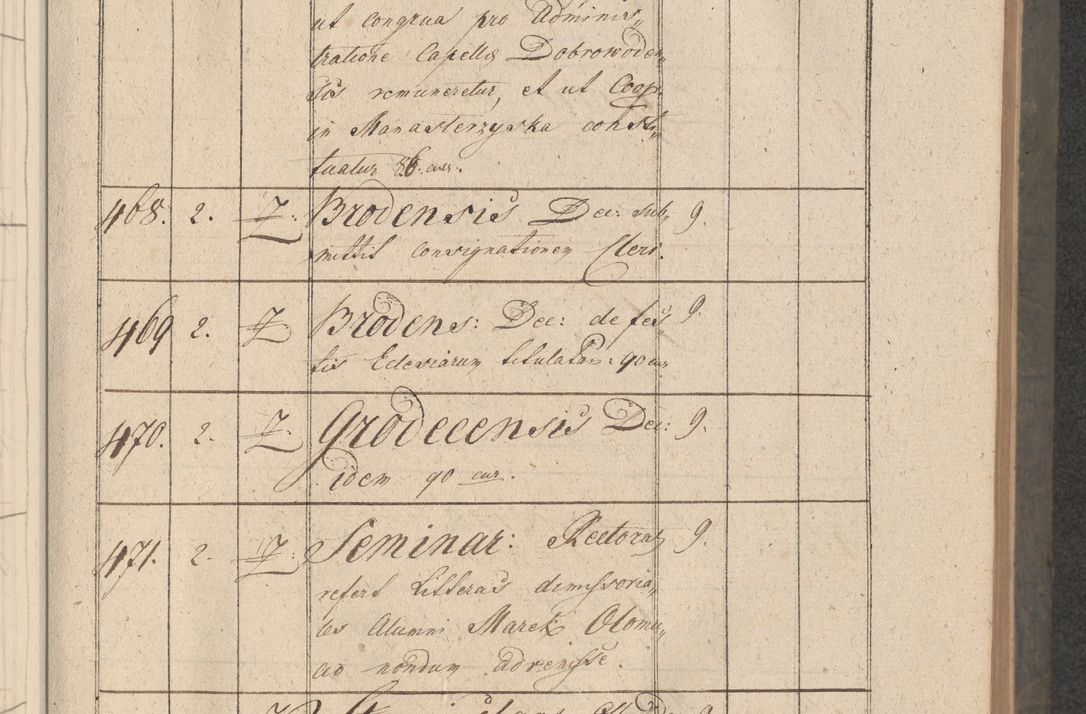 ut congrua pro Adminis„
tratione Capellæ Dobrowoden„
sis remuneretur, et ut Coop.
in Manasterzyska consti„
tuatur cur.
468. 2. 7. Brodensis Dec: sub„ 9.
mittit consignationem Cleri.
469 2. 7. Brodens: Dec: de fes„ 9.
tis Ecclesiarum titularibus: 90 cur
470. 2. 7. Grodecensis Dec: 9.
idem 90 cur.
471. 2. 7. Seminar: Rectorat„ 9.
refert Litteras dimissoria„
les Alumni Marek Olomu„
cio nondum advenisse.